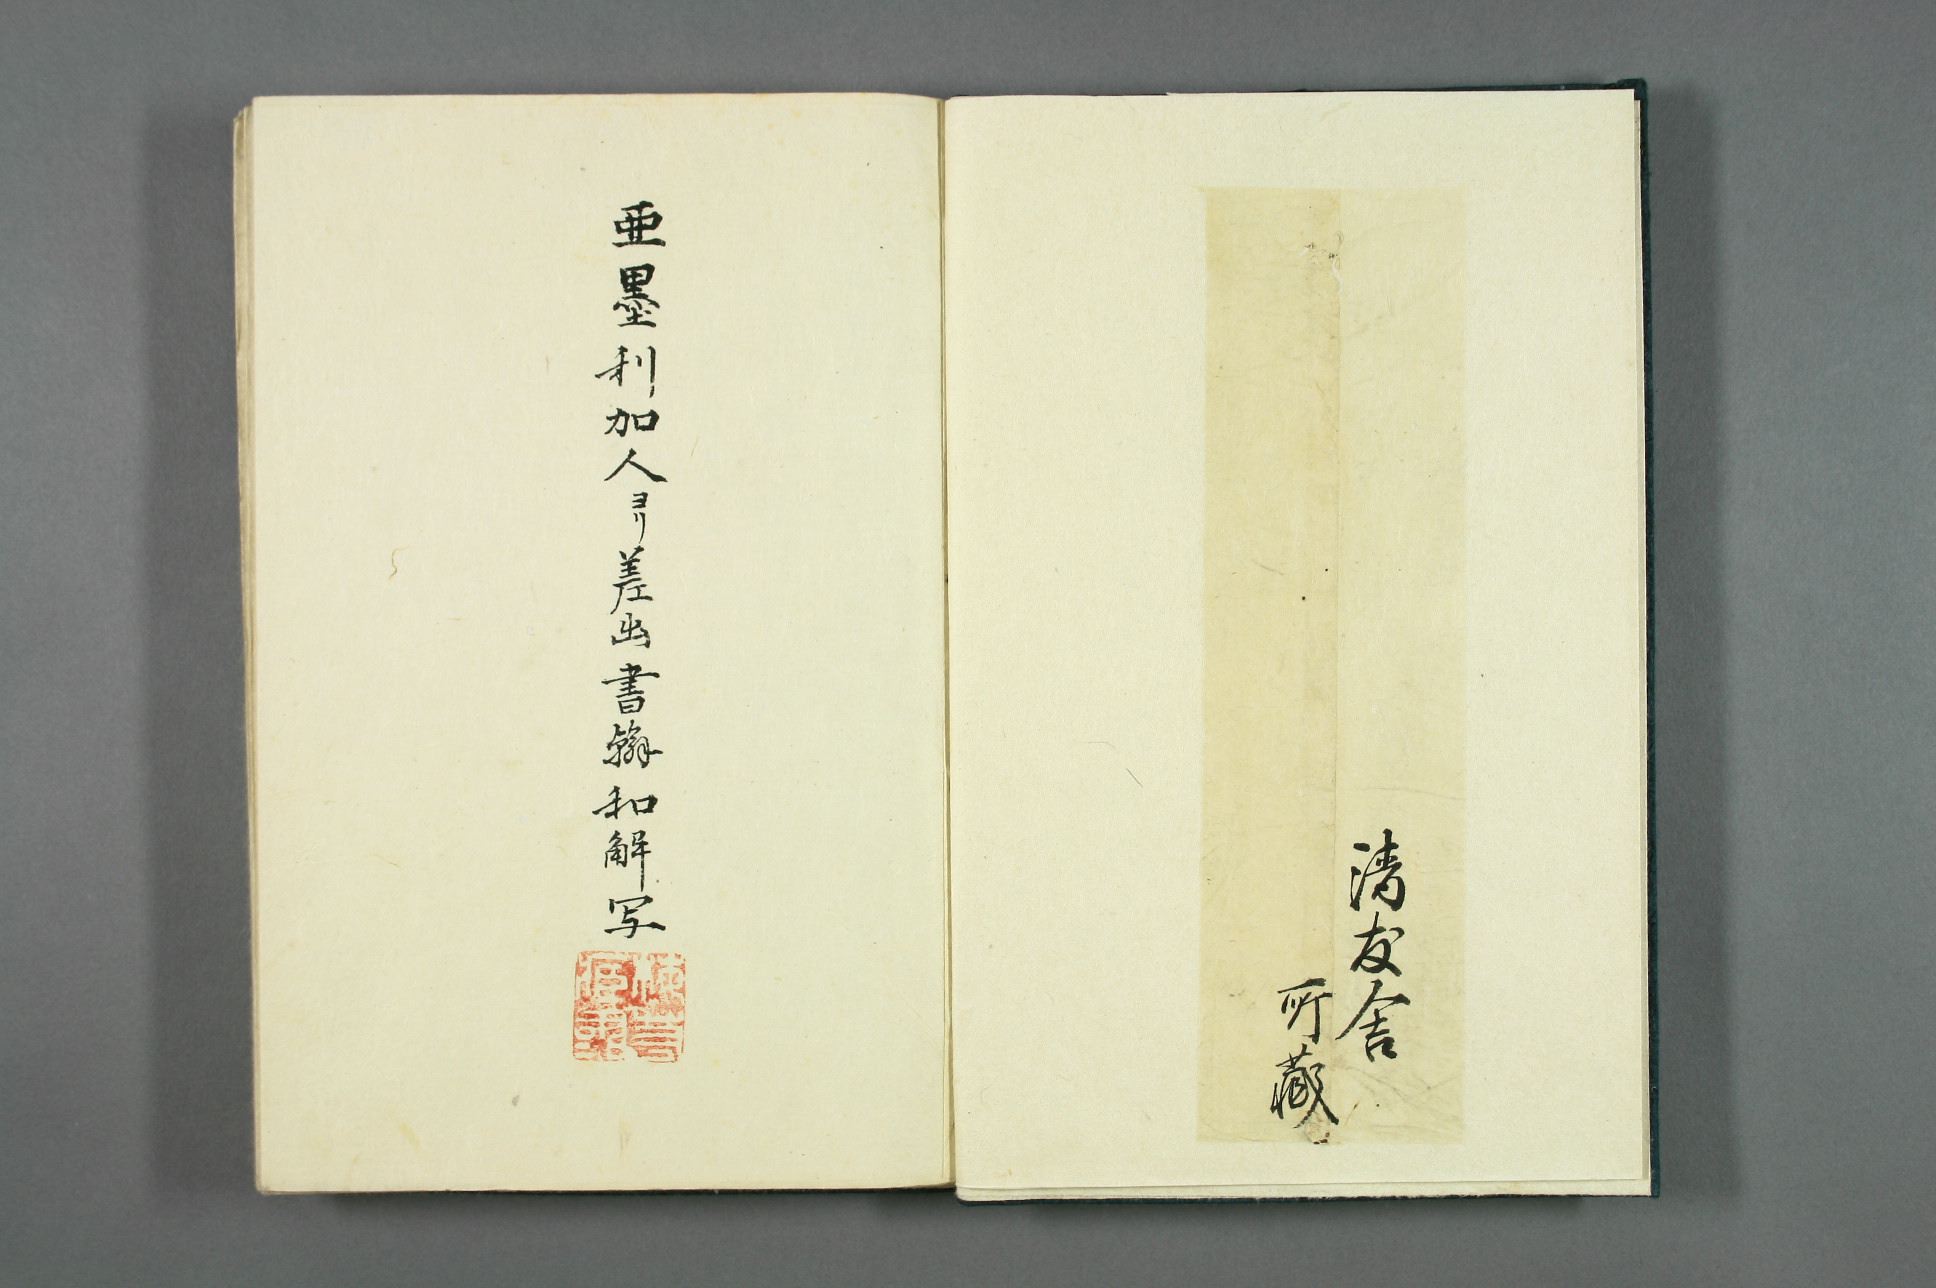 清友舎
所蔵
亜墨利加人ヨリ差出書翰和解写